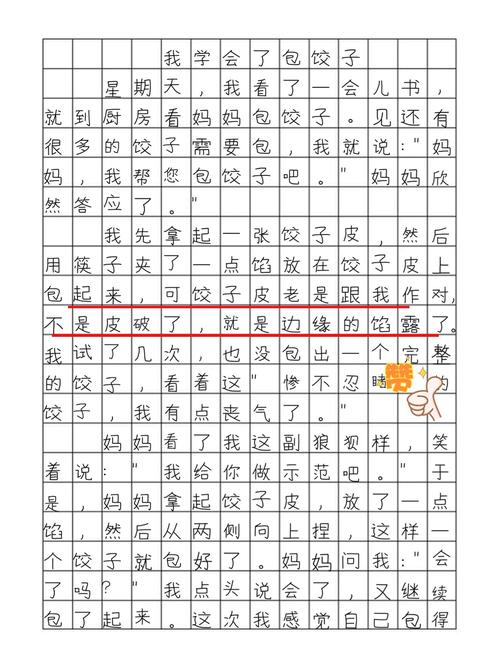 我学会了包饺子
星期天，我看了一会儿书，
就到厨房看妈妈包饺子。见还有
很多的饺子需要包，我就说："妈
妈，我帮您包饺子吧。"妈妈欣
然答应了。"
我先拿起一张饺子皮，然后
用筷子夹了一点馅放在饺子皮上
包起来，可饺子皮老是跟我作对，
不是皮破了，就是边缘的馅露了。
我试了几次，也没包出一个完整
的饺子，看着这"惨不忍睹"的
饺子，我有点丧气了。"
赞
妈妈看了我这副狼狈样，笑
着说："我给你做示范吧。"于
是，妈妈拿起饺子皮，放了一点
馅，然后从两侧向上捏，这样一
个饺子就包好了。妈妈问我："会
了吗？"我点头说会了，又继续
包了起来。这次我感觉自己包得